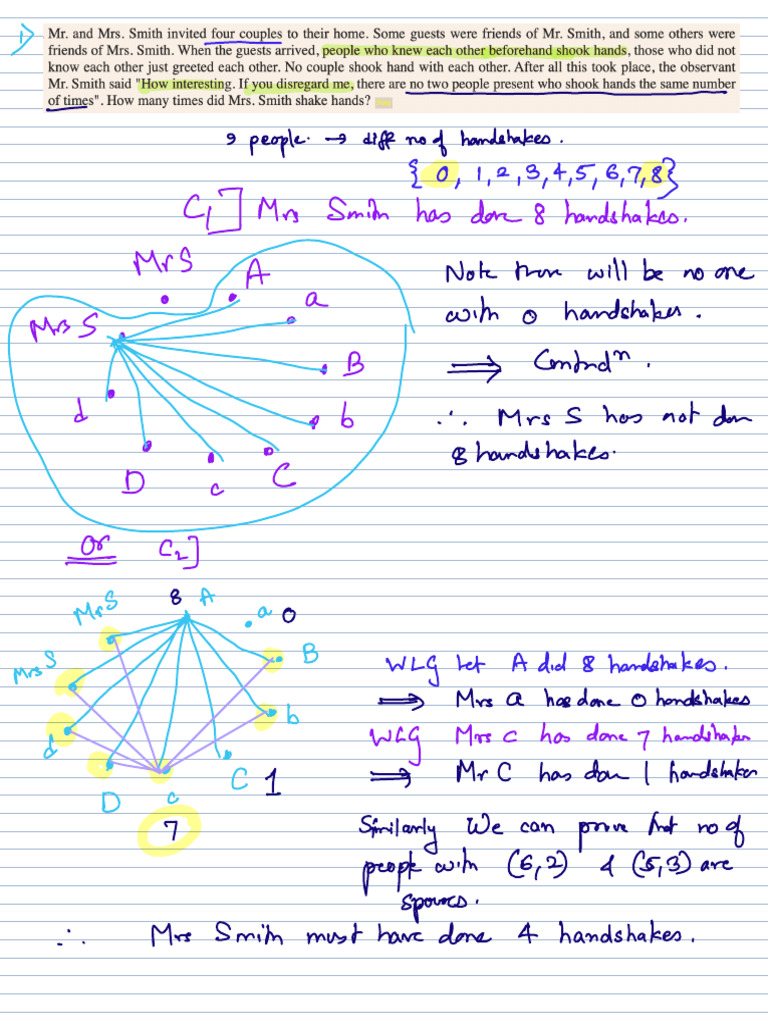 1)
Mr. and Mrs. Smith invited four couples to their home. Some guests were friends of Mr. Smith, and some others were
friends of Mrs. Smith. When the guests arrived, people who knew each other beforehand shook hands, those who did not
know each other just greeted each other. No couple shook hand with each other. After all this took place, the observant
Mr. Smith said "How interesting. If you disregard me, there are no two people present who shook hands the same number
of times". How many times did Mrs. Smith shake hands?
9 people. → diff no of handshakes.
{0, 1, 2, 3, 4, 5, 6, 7, 8}
C1] Mrs Smith has done 8 handshakes.
Mr S
A
a
Mrs S
B
b
C
c
D
d
Note there will be no one
with 0 handshakes.
⟹ Contradn.
∴ Mrs S has not don
8 handshakes.
or C2]
Mr S
8 A
a 0
Mrs S
B
b
d
D
c
C 1
7
WLG Let A did 8 handshakes.
⟹ Mrs a has done 0 handshakes
WLG Mrs c has done 7 handshakes
⟹ Mr C has don 1 handshakes
Similarly We can prove that no of
people with (6,2) & (5,3) are
spouses.
∴ Mrs Smith must have done 4 handshakes.